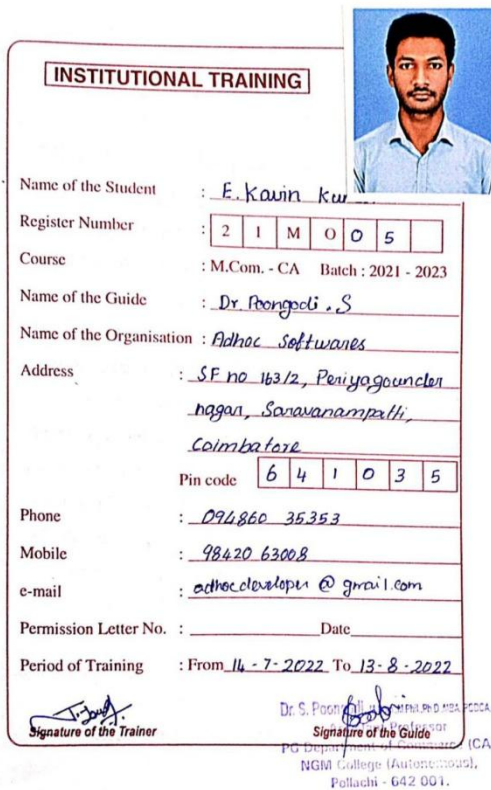 INSTITUTIONAL TRAINING
Name of the Student : E. Kavin
Register Number : 2 1 M O 0 5
Course : M.Com. - CA Batch : 2021 - 2023
Name of the Guide : Dr. Poongodi . S
Name of the Organisation : Adhoc Softwares
Address : SF no 163/2, Periyagounder
nagar, Saravanampatti,
Coimbatore
Pin code 6 4 1 0 3 5
Phone : 094860 35353
Mobile : 98420 63008
e-mail : adhocdeveloper @ gmail.com
Permission Letter No. : Date
Period of Training : From 14 - 7 - 2022 To 13 - 8 - 2022
Signature of the Trainer
Dr. S. Poon
Professor
Signature of the Guide
PG Department of Commerce (CA
NGM College (Autonomous),
Pollachi - 642 001.